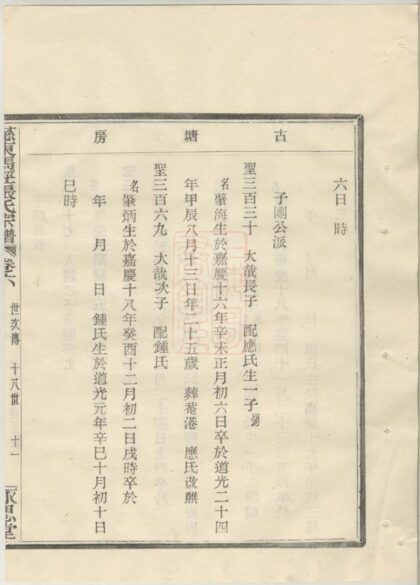 六日 時
古 塘 房
子剛公派
聖三百三十 大哉長子 配應氏生一子
名肇海生於嘉慶十六年辛未正月初六日卒於道光二十四
年甲辰八月十三日年三十五歲 葬菴港 應氏改醮
聖三百六九 大哉次子 配鍾氏
名肇炳生於嘉慶十八年癸酉十二月初二日戌時卒於
年 月 日 鍾氏生於道光元年辛巳十月初十日
巳時
慈東馬徑張氏宗譜 卷 世次傳 十八世 十一 永思堂